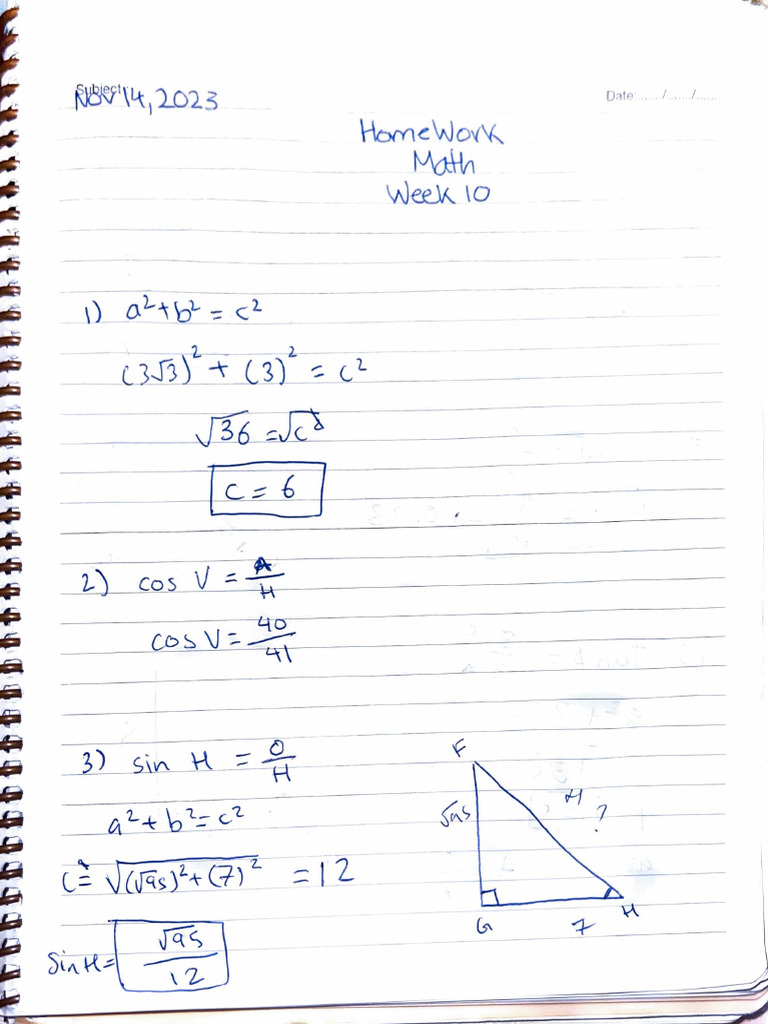 Subject
Nov 14, 2023
Date: ...../....../......
HomeWork
Math
Week 10
1) a² + b² = c²
(3√3)² + (3)² = c²
√36 = √c²
c = 6
2) cos V = A/H
cos V = 40/41
3) sin H = O/H
a² + b² = c²
c = √(√95)² + (7)² = 12
sin H = √95/12
F
√95
H
?
G
7
H